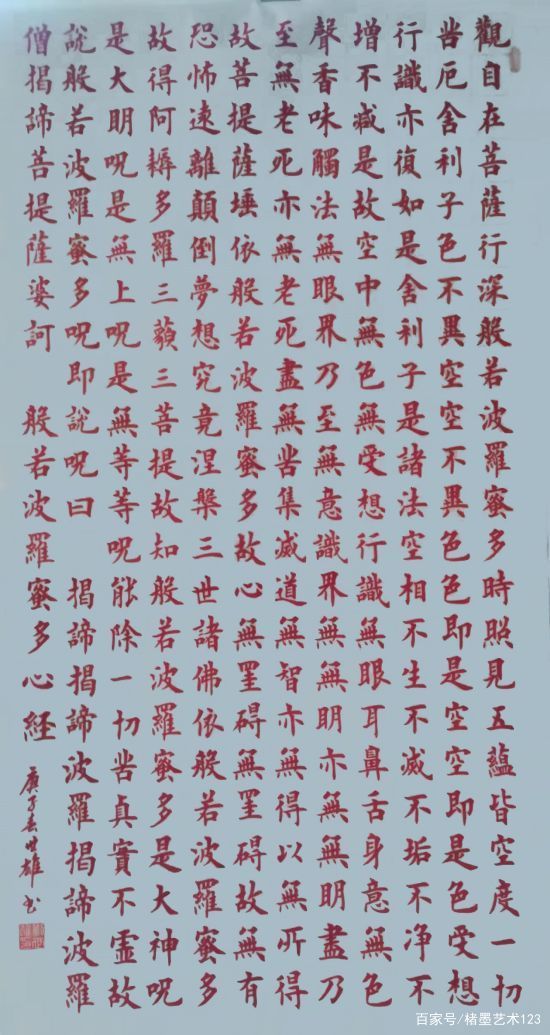 觀自在菩薩行深般若波羅蜜多時照見五蘊皆空度一切
苦厄舍利子色不異空空不異色色即是空空即是色受想
行識亦復如是舍利子是諸法空相不生不滅不垢不净不
增不減是故空中無色無受想行識無眼耳鼻舌身意無色
聲香味觸法無眼界乃至無意識界無無明亦無無明盡乃
至無老死亦無老死盡無苦集滅道無智亦無得以無所得
故菩提薩埵依般若波羅蜜多故心無罣碍無罣碍故無有
恐怖遠離顛倒夢想究竟涅槃三世諸佛依般若波羅蜜多
故得阿耨多羅三藐三菩提故知般若波羅蜜多是大神呪
是大明呪是無上呪是無等等呪能除一切苦真實不虛故
說般若波羅蜜多呪即說呪曰 揭諦揭諦波羅揭諦波羅
僧揭諦菩提薩婆訶 般若波羅蜜多心経
庚子春世雄书
百家号/楮墨艺术123